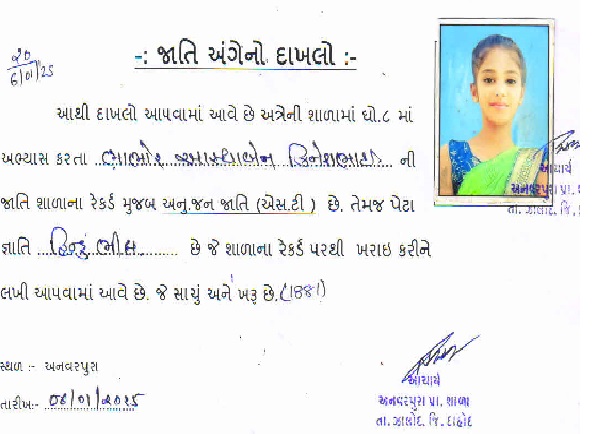 ૨૦
૬/૦૧/૨૫
-: જાતિ અંગેનો દાખલો :-
આથી દાખલો આપવામાં આવે છે અત્રેની શાળામાં ધો.૮ માં
અભ્યાસ કરતા ભાભોર આસ્થાબેન દિનેશભાઇ ની
જાતિ શાળાના રેકર્ડ મુજબ અનુ.જન જાતિ (એસ.ટી ) છે. તેમજ પેટા
જ્ઞાતિ હિન્દુ ભીલ છે જે શાળાના રેકર્ડ પરથી ખરાઇ કરીને
લખી આપવામાં આવે છે. જે સાચું અને ખરૂ છે.(1881)
આચાર્ય
અનવરપુરા પ્રા. શા
તા. ઝાલોદ, જિ.
સ્થળ :- અનવરપુરા
તારીખ:- ૦૬/૦૧/૨૦૨૫
આચાર્ય
અનવરપુરા પ્રા. શાળા
તા. ઝાલોદ. જિ. દાહોદ